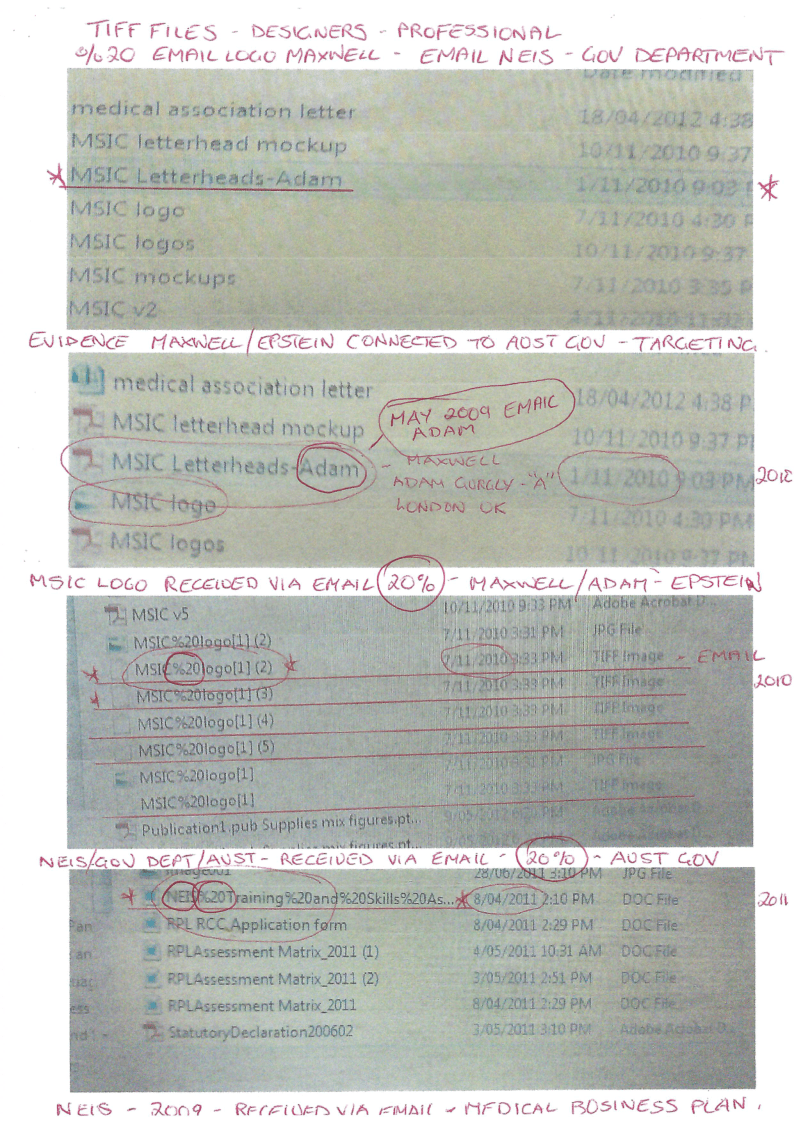 TIFF FILES - DESIGNERS - PROFESSIONAL
%20 EMAIL LOGO MAXWELL - EMAIL NEIS - GOV DEPARTMENT
Date modified
medical association letter 18/04/2012 4:38
MSIC letterhead mockup 10/11/2010 9:37
MSIC Letterheads-Adam 1/11/2010 9:03
MSIC logo 7/11/2010 4:30 P
MSIC logos 10/11/2010 9:37
MSIC mockups 7/11/2010 3:35 P
MSIC v2
EVIDENCE MAXWELL/EPSTEIN CONNECTED TO AUST GOV - TARGETING.
medical association letter 18/04/2012 4:38 P
MAY 2009 EMAIL
ADAM
MSIC letterhead mockup 10/11/2010 9:37 P
MSIC Letterheads-Adam - MAXWELL 1/11/2010 9:03 PM 2010
ADAM GURGLY - "A"
LONDON UK
MSIC logo 7/11/2010 4:30 PM
MSIC logos 10/11/2010 9:37 PM
MSIC LOGO RECEIVED VIA EMAIL 20% - MAXWELL/ADAM - EPSTEIN
MSIC v5 10/11/2010 9:33 PM Adobe Acrobat D...
MSIC%20logo[1] (2) 7/11/2010 3:31 PM JPG File
MSIC%20logo[1] (2) 7/11/2010 3:33 PM TIFF Image - EMAIL
2010
MSIC%20logo[1] (3) 7/11/2010 3:33 PM TIFF Image
MSIC%20logo[1] (4) 7/11/2010 3:33 PM TIFF Image
MSIC%20logo[1] (5) 7/11/2010 3:33 PM TIFF Image
MSIC%20logo[1] 7/11/2010 3:31 PM JPG File
MSIC%20logo[1] 7/11/2010 3:33 PM TIFF Image
Publication1.pub Supplies mix figures.pt... Adobe Acrobat D...
NEIS/GOV DEPT/AUST - RECEIVED VIA EMAIL - 20% - AUST GOV
Image001 28/06/2011 3:10 PM JPG File
NEIS%20Training%20and%20Skills%20As... 8/04/2011 2:10 PM DOC File 2011
RPL RCC Application form 8/04/2011 2:29 PM DOC File
RPLAssessment Matrix_2011 (1) 4/05/2011 10:31 AM DOC File
RPLAssessment Matrix_2011 (2) 3/05/2011 2:51 PM DOC File
RPLAssessment Matrix_2011 8/04/2011 2:29 PM DOC File
StatutoryDeclaration200602 3/05/2011 3:10 PM Adobe Acrobat D...
NEIS - 2009 - RECEIVED VIA EMAIL - MEDICAL BUSINESS PLAN.